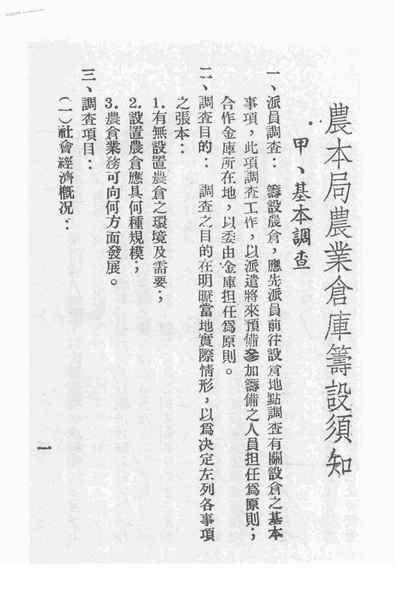 農本局農業倉庫籌設須知
甲、基本調查
一、派員調查： 籌設農倉，應先派員前往設倉地點調查有關設倉之基本
事項，此項調查工作，以派遣將來預備參加籌備之人員担任爲原則；
合作金庫所在地，以委由金庫担任爲原則。
二、調查目的： 調查之目的在明瞭當地實際情形，以爲决定左列各事項
之張本：
1.有無設置農倉之環境及需要；
2.設置農倉應具何種規模；
3.農倉業務可向何方面發展。
三、調查項目：
（一）社會經濟概況：
一